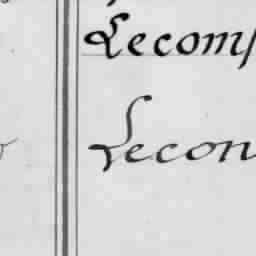 Lecomp
Lecon